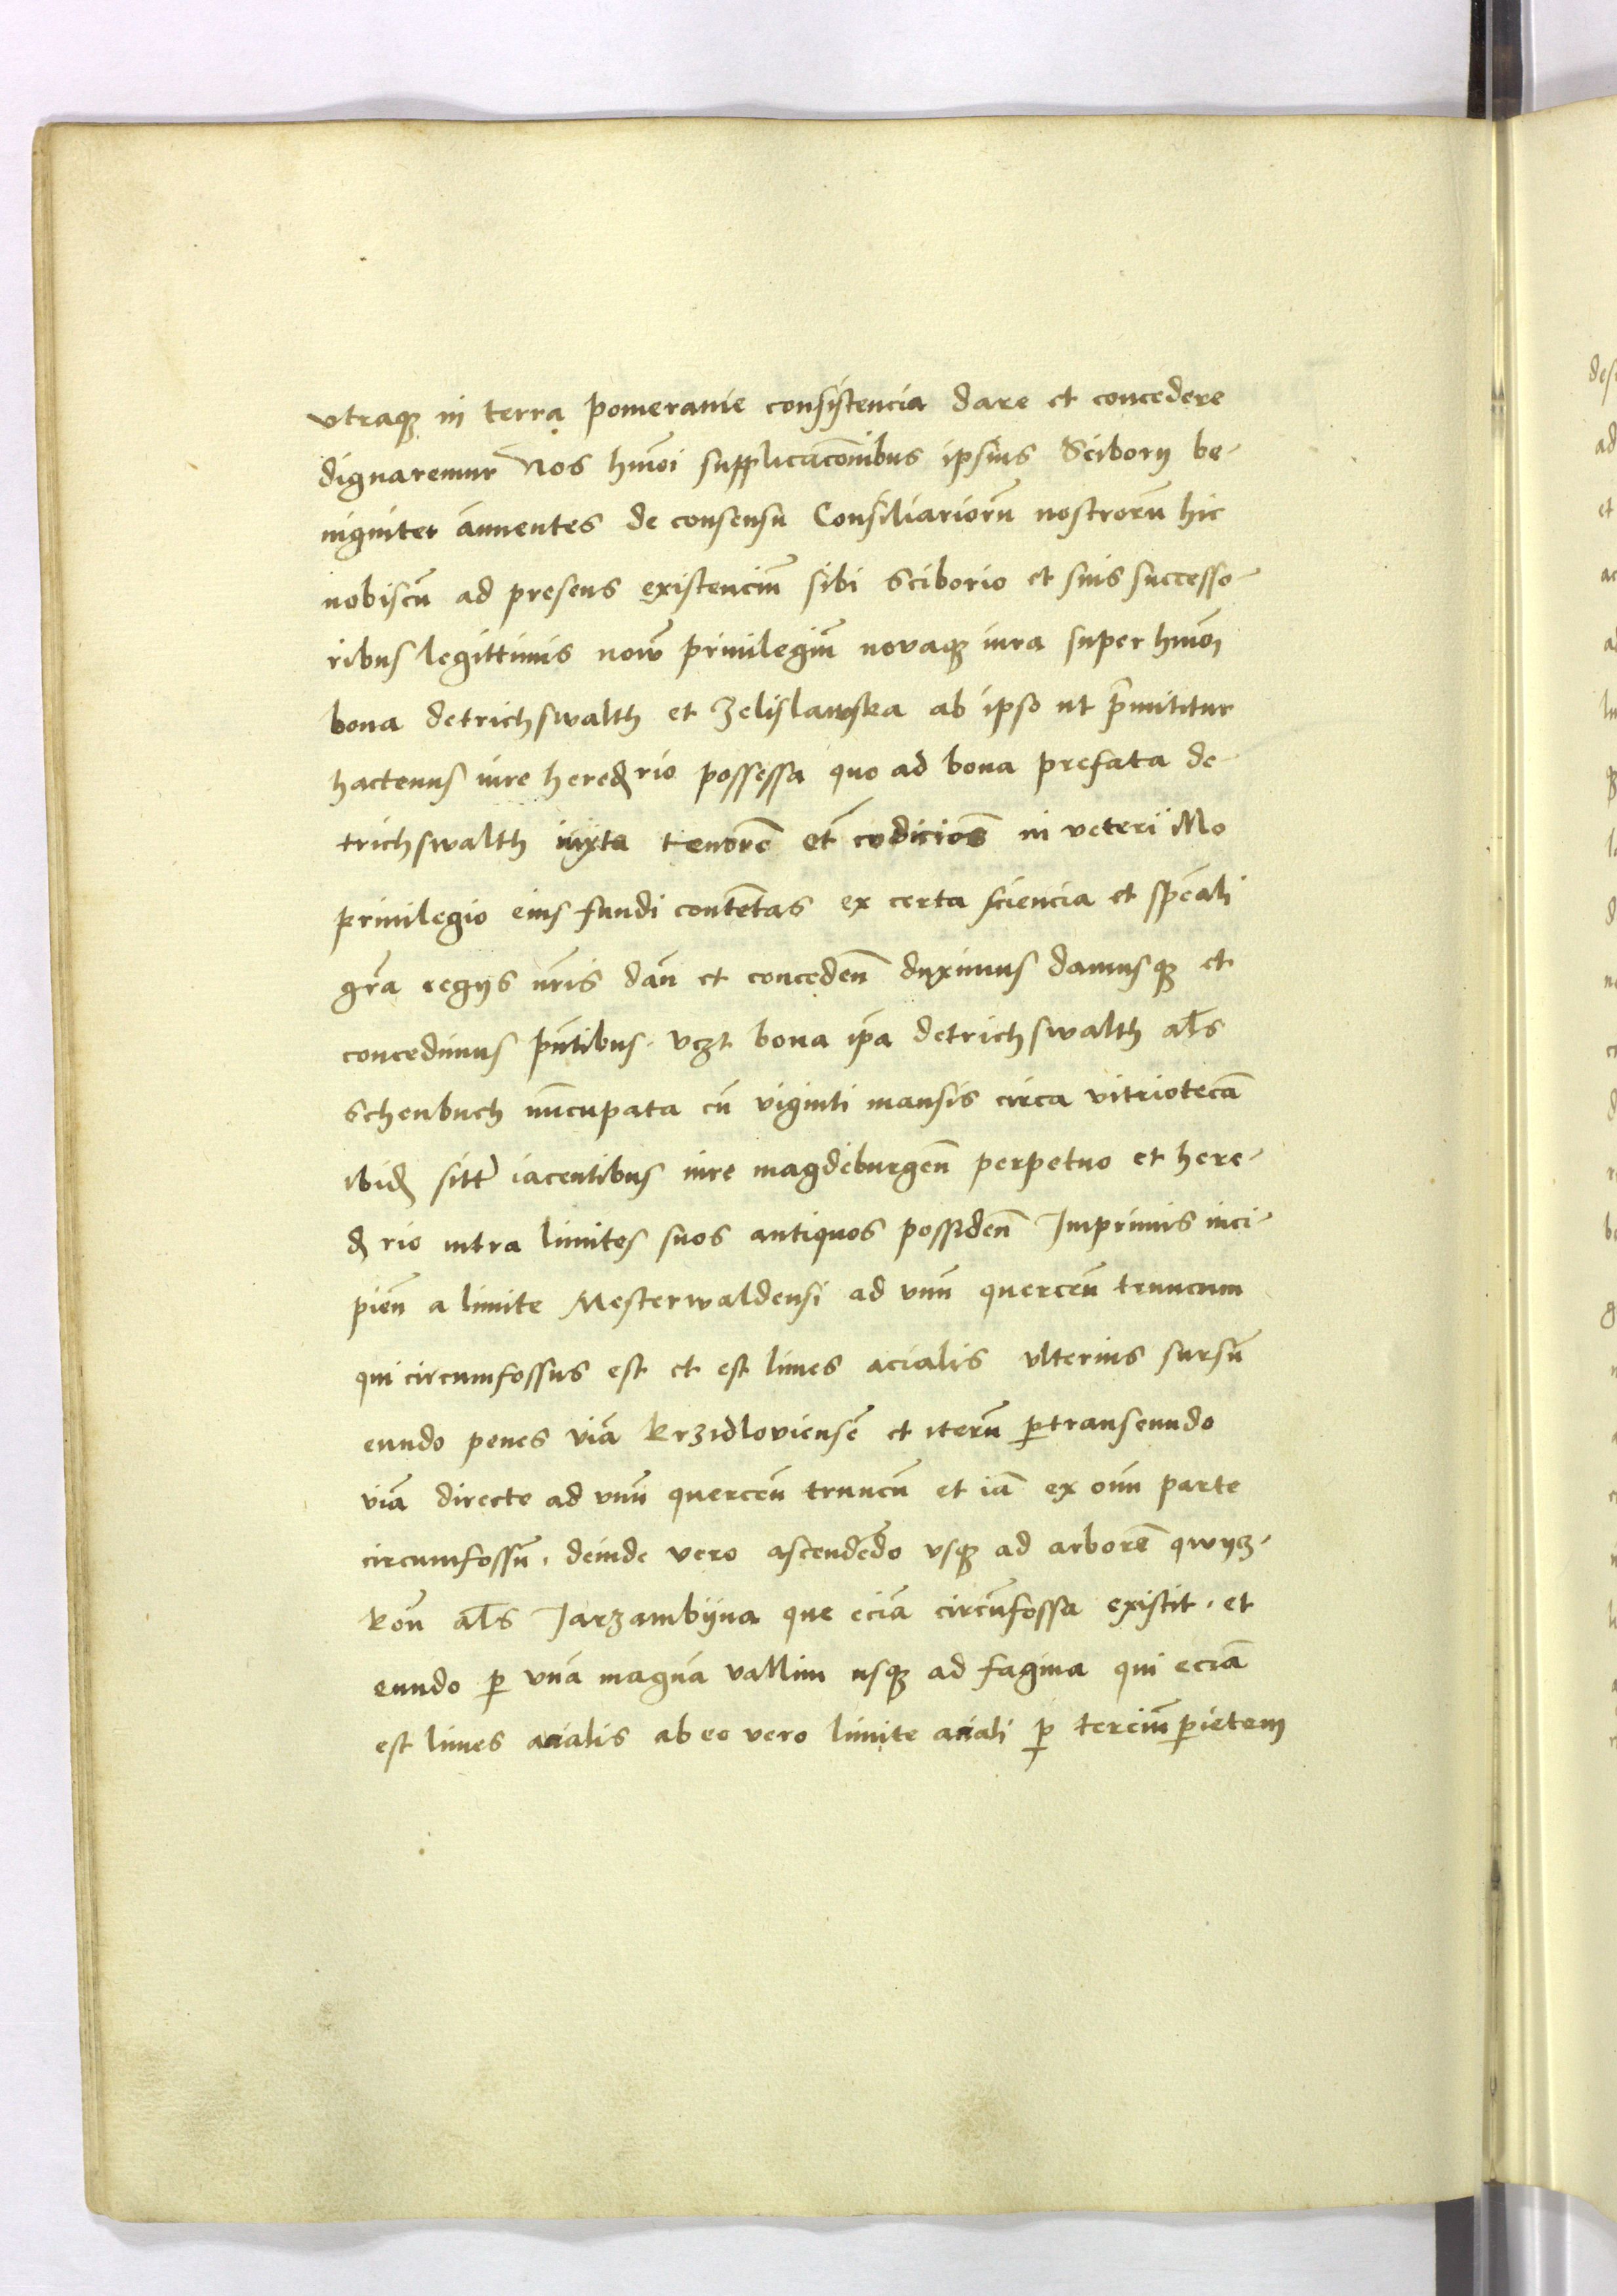 vtraqꝫ in terra pomeranie consistencia dare et concedere
dignaremur Nos hmōi supplicacōnibus ipsius Sciborij be-
nigniter ānuentes de consensu Consiliariorū nostrorū hic
nobiscū ad presens existenciū sibi Sciborio et suis successo-
ribus legittimis nowū priuilegiū novaqꝫ iura super hmōi
bona detrichswalth et Zelislawska ab ipso ut p̄mittitur
hactenus iure hereꝺrio possessa quo ad bona prefata de-
trichswalth iuxta tenorē et cōdiciōs in veteri illo
priuilegio eius fundi contētas ex certa sciencia et spēali
gr̄a regijs nr̄is dan̄ et conceden̄ duximus damusqꝫ et
concedimus pn̄tibus. vczt bona ip̄a detrichswalth al̄s
Schenbuch nūcupata cū viginti mansis circa vitriotecā
ibiꝺ sitt̄ iacentibus iure magdeburgen̄ perpetuo et here-
ꝺrio intra limites suos antiquos possiden̄ Inprimis inci-
pien̄ a limite Mesterwaldensi ad vnū querceū truncum
qui circumfossus est et est limes acialis vlterius sursū
eundo penes viā krzidloviensē et iterū ꝑtranseundo
viā directe ad vnū querceū truncū et iā ex oīni parte
circumfossū. deinde vero ascendēdo vsqꝫ ad arborē qwycz-
kōn al̄s Jarzambijna que eciā circūfossa existit. et
eundo ꝑ vnā magnā vallim usqꝫ ad fagina qui eciā
est limes acialis ab eo vero limite aciali ꝑ terciū ꝑietem